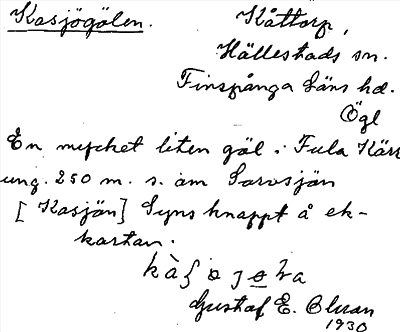 Kasjögölen. Kåttorp,
Hällestads sn.
Finspånga läns hd.
Ögl
En mycket liten göl i Fula Kärr
ung. 250 m. s. om
[Kasjön] Syns knappt å ek-
kartan.
Gustaf E. Olsson
1930